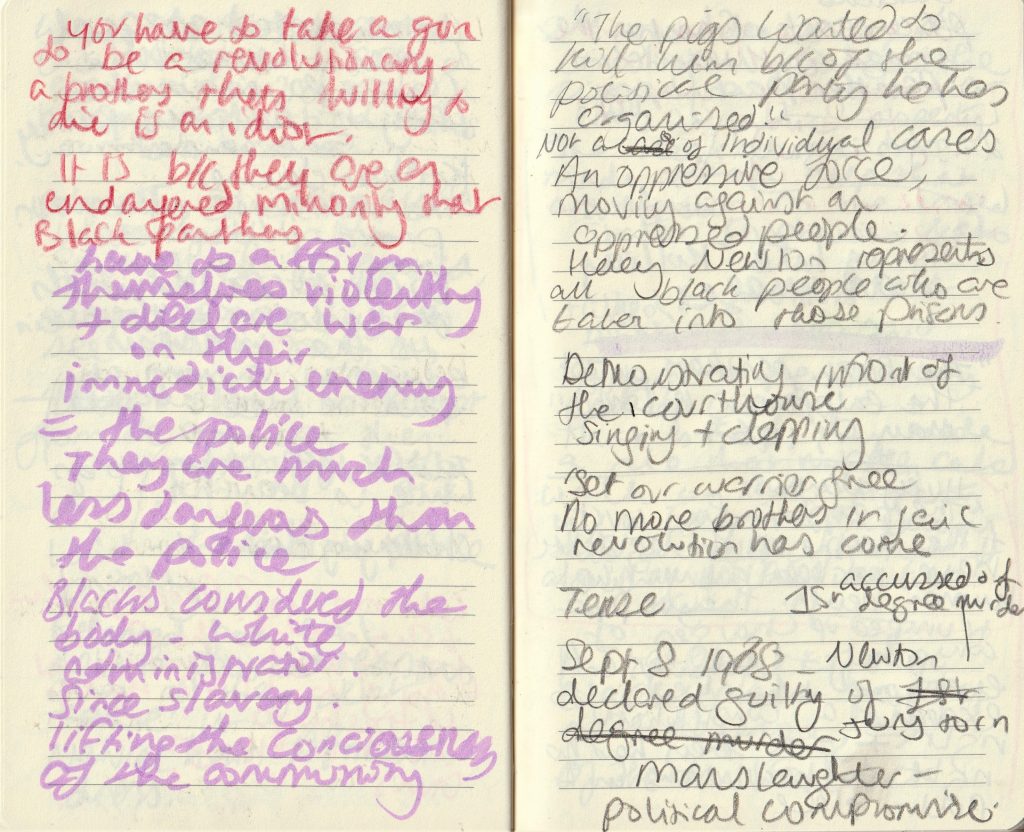 you have to take a gun
to be a revolutionary -
a brothers thats willing to
die is an idiot.
It is b/c they are an
endangered minority that
Black panthers
have to affirm
themselves violently
+ declare war
on their
immediate enemy
= the police
They are much
less dangerous than
the police
Blacks considered the
body - white
administrator.
Since slavery.
lifting the conciousness
of the community
"The pigs wanted to
kill him b/c of the
political party he has
organised."
Not a of individual cares
An oppressive force,
moving against an
oppressed people.
Huey Newton represents
all black people who are
taken into those prisons.
Demonstrating infront of
the courthouse
Singing + clapping
'Set our warrier free
No more brothers in jail
revolution has come
accussed of
Tense 1st degree murder
Sept 8 1968 Newton
declared guilty of 1st
degree murder jury torn
manslaughter -
political compromise.